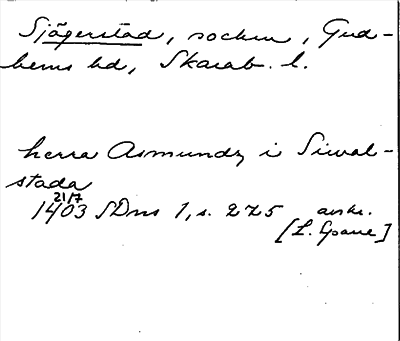 Sjögerstad, socken, Gud-
hems hd, Skarab. l.
herra Asmundz i Siwal-
stada
21/7
1403 SDns 1, s. 275 avskr.